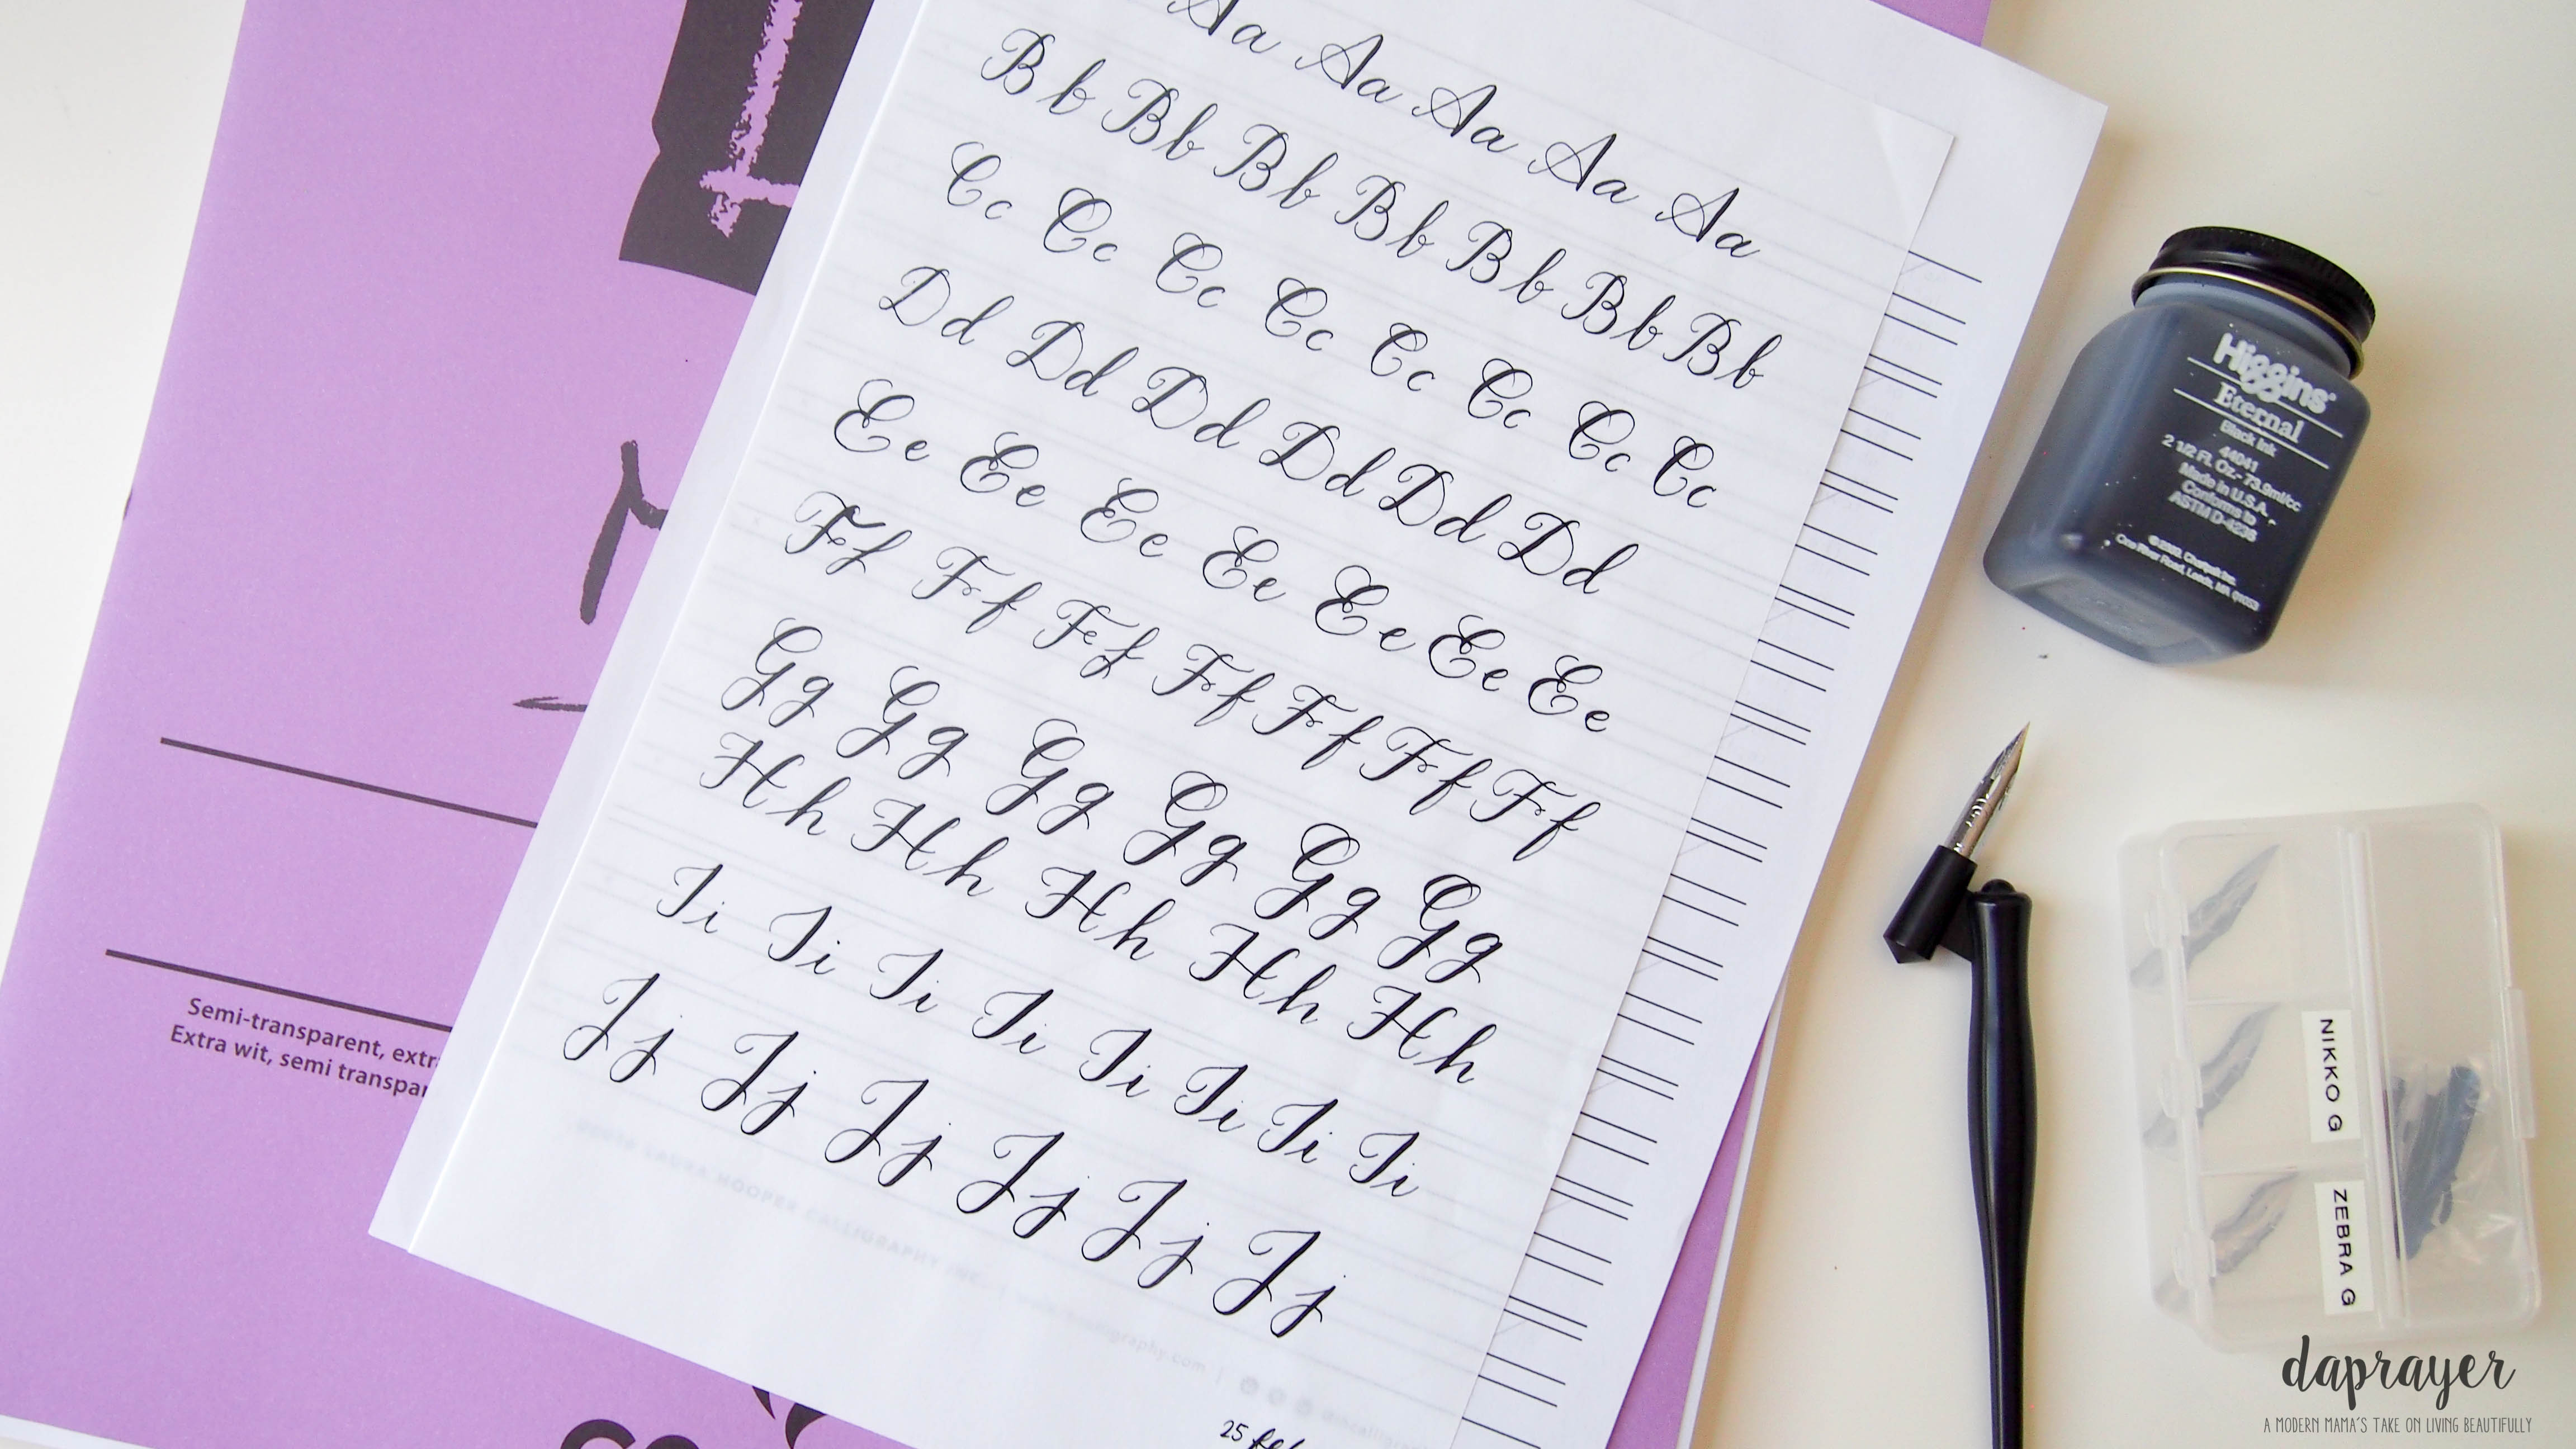 Aa Aa Aa Aa Aa
Bb Bb Bb Bb Bb Bb Bb
Cc Cc Cc Cc Cc Cc Cc Cc
Dd Dd Dd Dd Dd Dd
Ee Ee Ee Ee Ee Ee Ee
Ff Ff Ff Ff Ff Ff Ff
Gg Gg Gg Gg Gg Gg
Hh Hh Hh Hh Hh
Ii Ii Ii Ii Ii Ii Ii Ii
Jj Jj Jj Jj Jj Jj
25
Semi-transparent,
Extra wit, semi
Higgins®
Eternal
Black Ink
44041
2 1/2 FL. Oz.- 73.9ml/cc
Made in U.S.A. -
Conforms to
ASTM D-4236
One River Road, Leeds, MA 01053
NIKKO G
ZEBRA G
daprayer
A MODERN MAMA'S TAKE ON LIVING BEAUTIFULLY